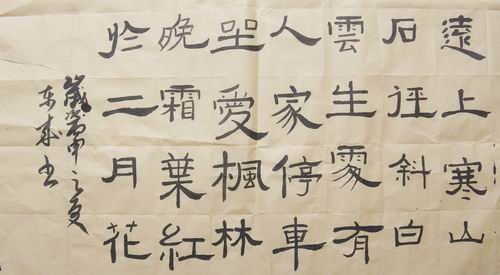 遠上寒山
石徑斜白
雲生處有
人家停車
坐愛楓林
晚霜葉紅
於二月花
歲申之夏
书